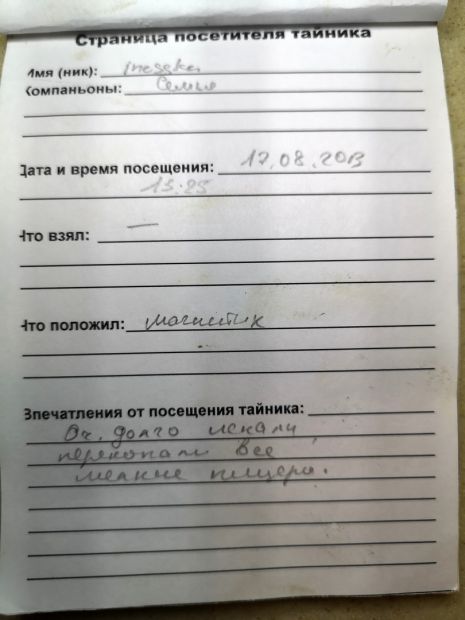 Страница посетителя тайника
Имя (ник): Inesska
Компаньоны: Семья
Дата и время посещения: 17.08.2013
13:25
Что взял: —
Что положил: магнитик
Впечатления от посещения тайника:
Оч. долго искали,
перекопали все
мелкие пещеры.